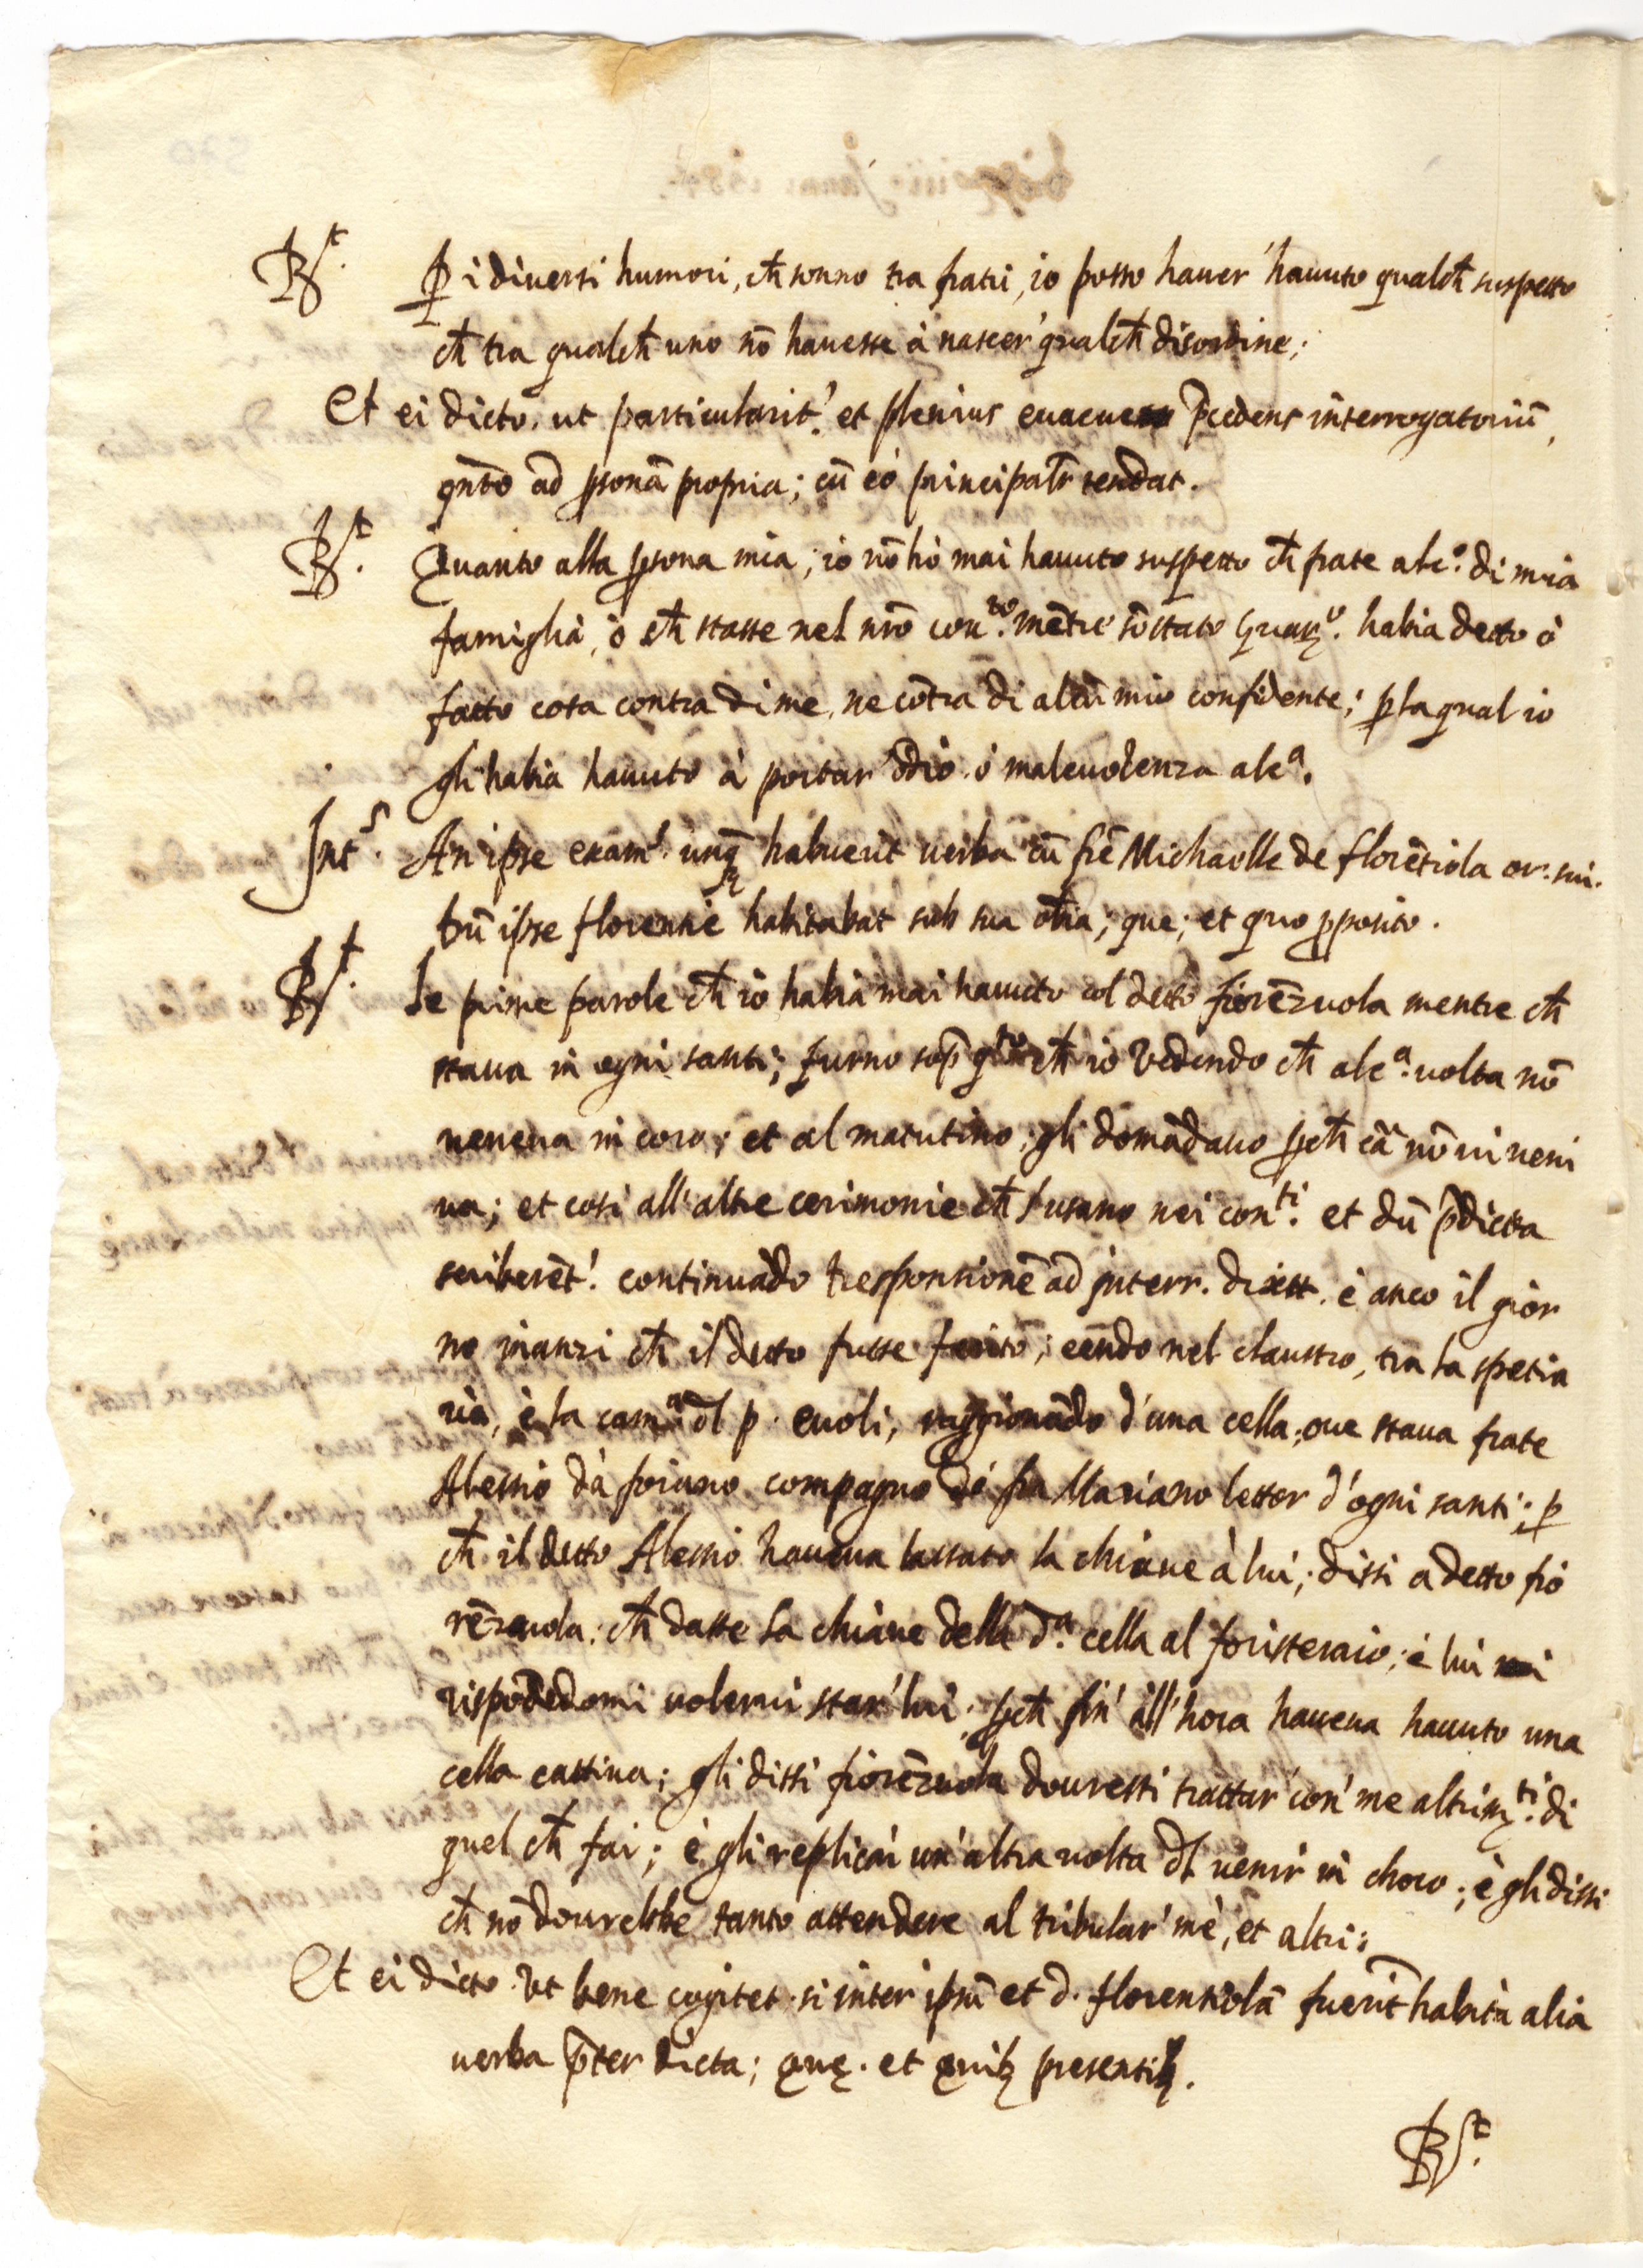 R.t P i diversi humori, ch̄ sonno tra frati, io posso haver' havuto qualch̄ suspetto
ch̄ tra qualch̄ uno nō havesse à nascer' qualch̄ disordine;
Et ei dicto. ut particularit.' et plenius evacuet p̄cedens interrogatoriū,
qnto ad psonā propria; cū eò principalr tendat.
R.t Quanto alla psona mia; io nō hò mai havuto suspetto ch̄ frate alc.o di mia
famiglià, ò ch̄ stasse nel nr̄o con.to mētre sō stato Guar.o habia detto ò
fatto cosa contra di me, ne cōtra di alcū mio confidente; p la qual io
gli habia havuto à portar' òdio ò malevolenza alc.a
Int.s An ipse exam.s unq̄ habuerit verba cū frē Michaelle de florētiola or. sui.
dū ipse florentie habitabat sub sua ob̄ia; que; et quo pposito.
R.t Le prime parole ch̄ io habia mai havuto col detto fiorēzuola mentre ch̄
stava in ogni santi; furno sop̄ q.to ch̄ io vedendo ch̄ alc.a volta nō
veneva in coro; et al matutino; gli domādavo pch̄ cā nō vi veni
va; et cosi all' altre cerimonie ch̄ s' usano nei con.ti et dū p̄dicta
scriberēt.' continuādo responsionē ad interr. dixit. è anco il gior
no inanzi ch̄ il detto fusse ferito; eēndo nel claustro, tra la spetia
ria, è la cam.a dl p. evoli, raggionādo d'una cella; ove stava frate
Alessio dà foiano compagno dé fra Mariano lettor d'ogni santi; p
ch̄ il detto Alessio haveva lassato la chiave à lui; dissi a detto fio
rēzuola: ch̄ dasse la chiave della d.a cella al foristeraio; è lui
rispōdēdomi volervi star' lui; pch̄ fin' all' hora haveva havuto una
cella cattiva; gli dissi fiorēzuola dovresti trattar' con' me altrim.ti di
quel ch̄ fai; è gli replicai un' altra volta dl venir in choro; è gli dissi
ch̄ nō dovrebbe tanto attendere al tribular' mè, et altri:
Et ei dicto. Ut bene cogitet. si inter ipsū et d. florentiolā fuerīt habita alia
verba p̄ter dicta; que. et quib; presentib;.
R.t